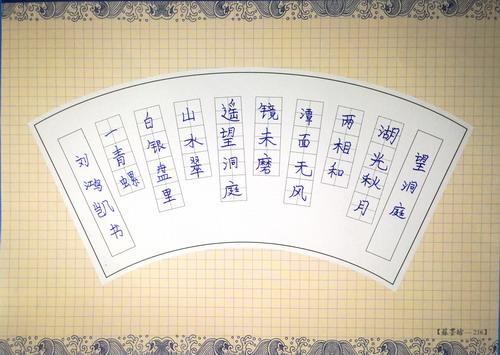 望洞庭
湖光秋月
两相和
潭面无风
镜未磨
遥望洞庭
山水翠
白银盘里
一青螺
刘鸿凯书